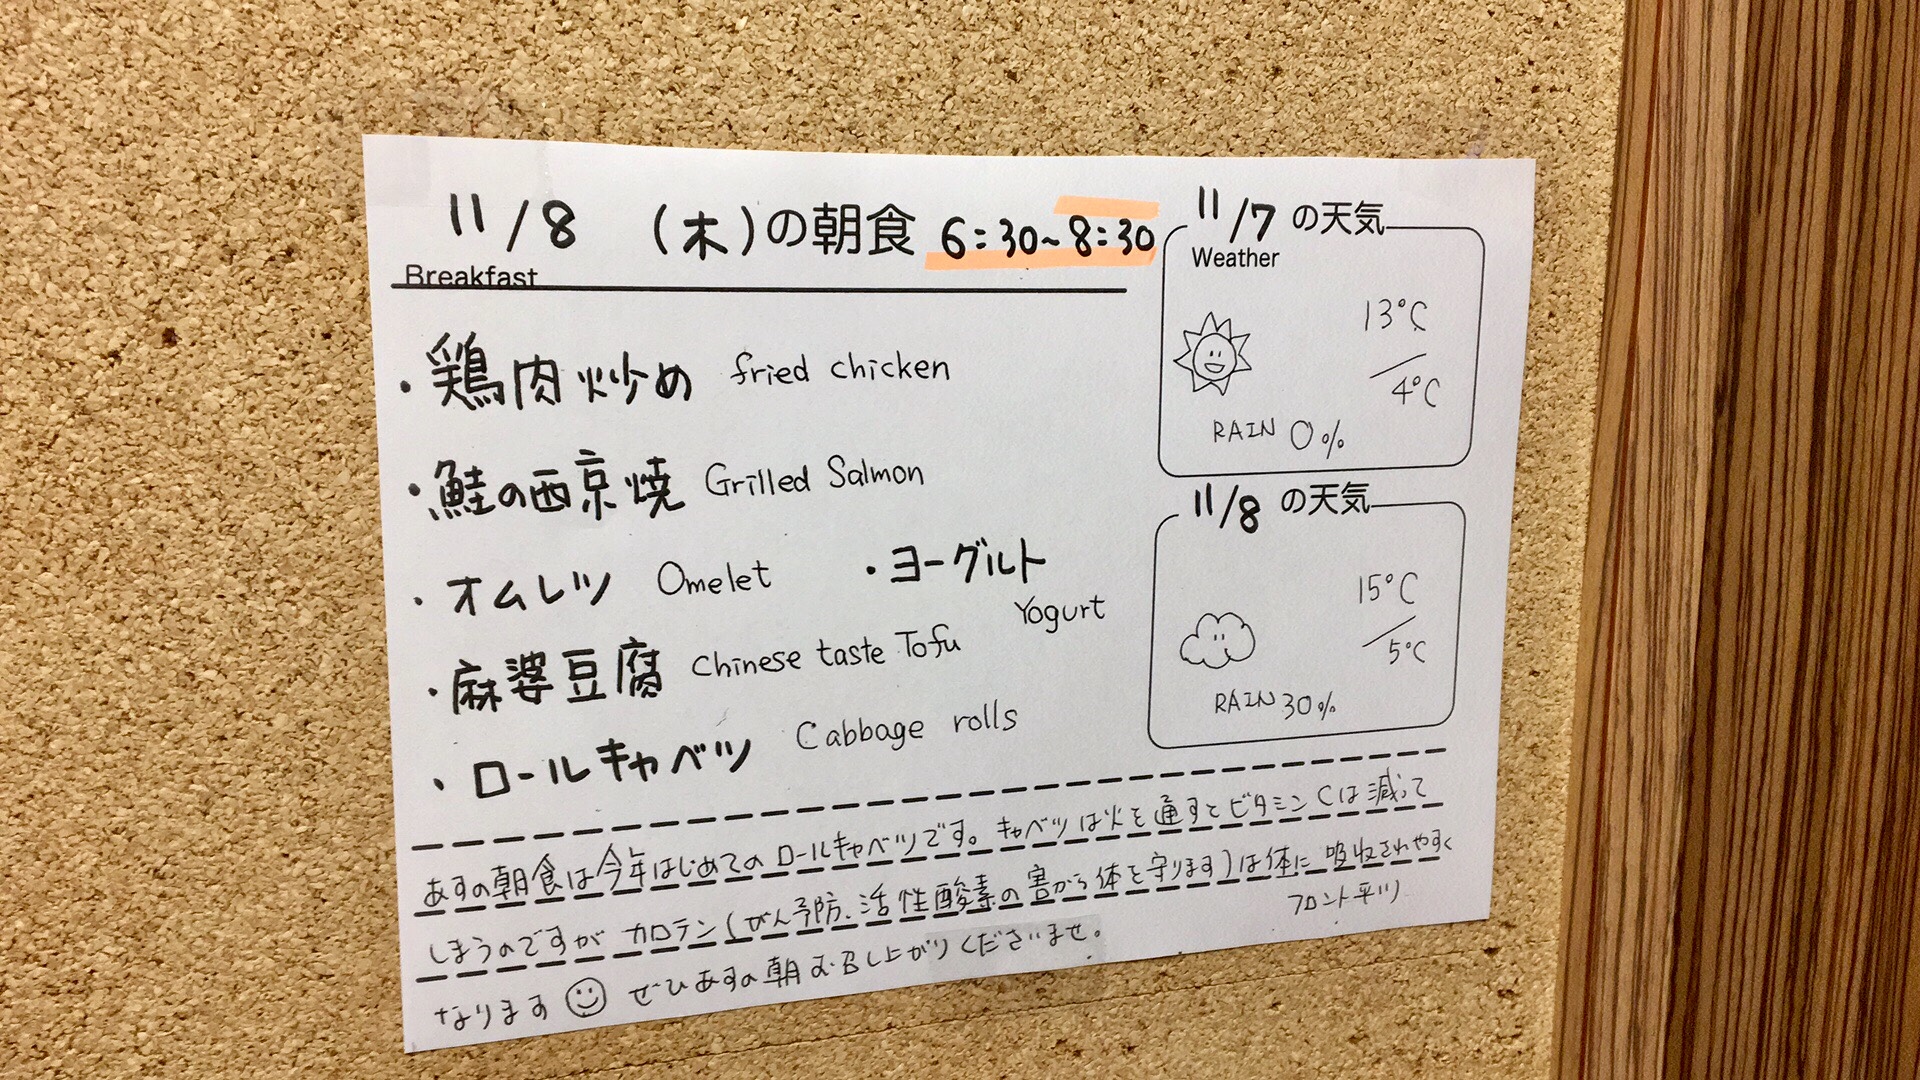 11/8 (木)の朝食 6:30~8:30
Breakfast
・鶏肉炒め fried chicken
・鮭の西京焼 Grilled Salmon
・オムレツ Omelet ・ヨーグルト
Yogurt
・麻婆豆腐 Chinese taste Tofu
・ロールキャベツ Cabbage rolls
11/7 の天気
Weather
13°C
4°C
RAIN 0%
11/8 の天気
15°C
5°C
RAIN 30%
あすの朝食は今年はじめてのロールキャベツです。キャベツは火を通すとビタミンCは減って
しまうのですが カロテン(がん予防、活性酸素の害から体を守ります)は体に吸収されやすく
なります☺ ぜひあすの朝お召し上がりくださいませ。
フロント平ツ